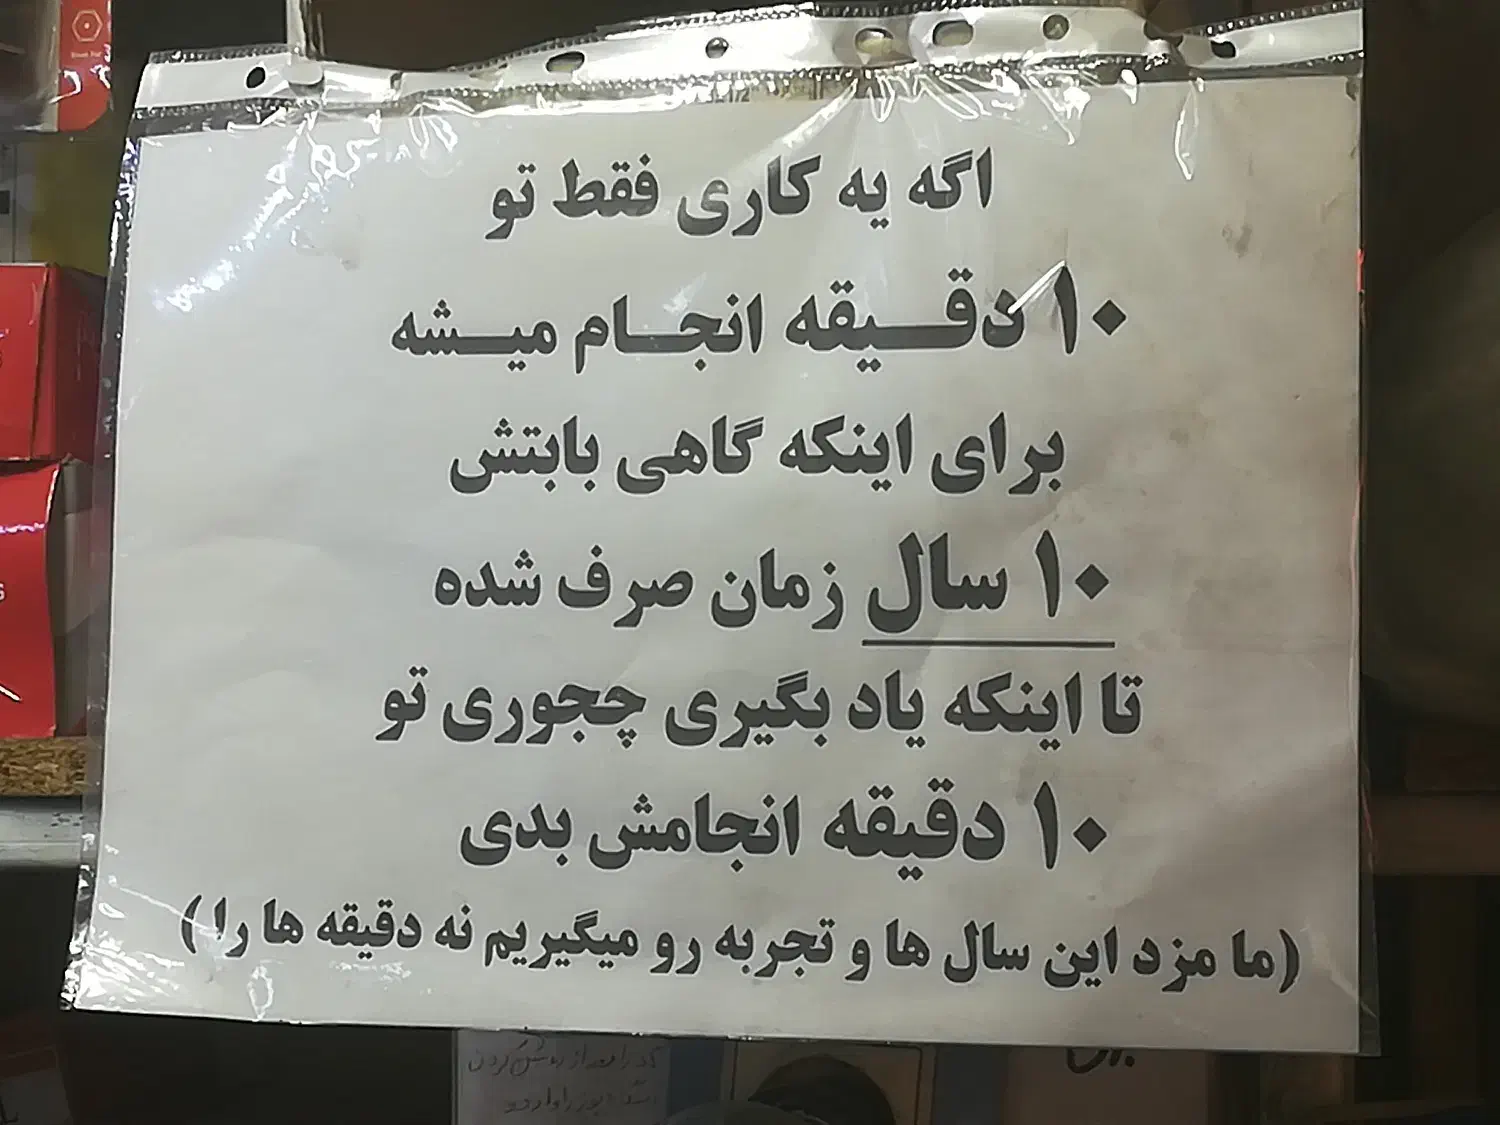 اگه یه کاری فقط تو
۱۰ دقیقه انجام میشه
برای اینکه گاهی بابتش
۱۰ سال زمان صرف شده
تا اینکه یاد بگیری چجوری تو
۱۰ دقیقه انجامش بدی
(ما مزد این سال ها و تجربه رو میگیریم نه دقیقه ها را)